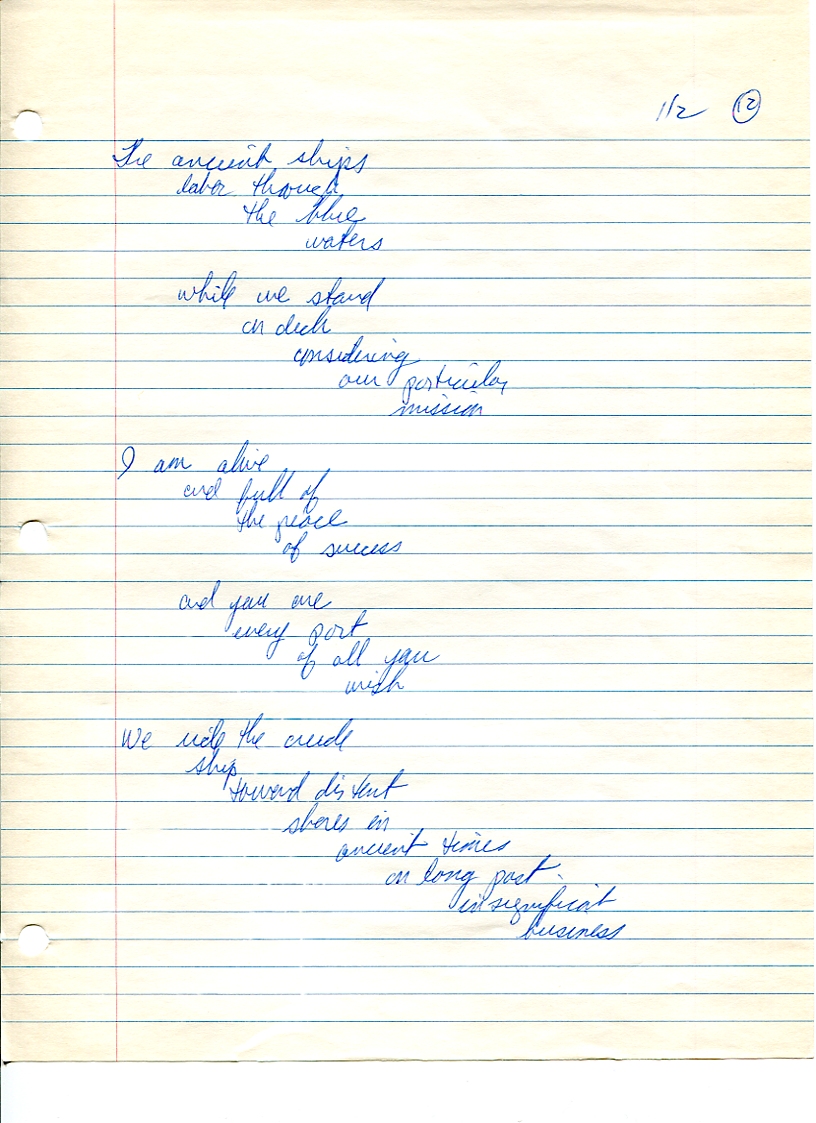 1/2 12
The ancient ships
labor through
the blue
waters
while we stand
on deck
considering
our particular
mission
I am alive
and full of
the peace
of success
and you are
every part
of all you
wish
We ride the crude
ship
toward distant
shores in
ancient times
on long past
insignificant
business